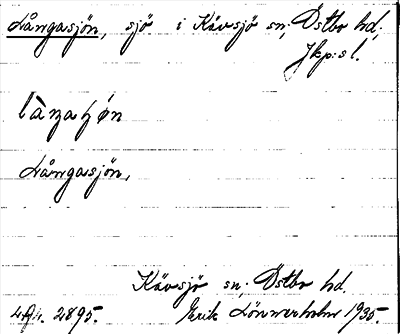 Långasjön, sjö i Kävsjö sn; Östbo hd;
Jkp:s l.
Långasjön,
Kävsjö sn; Östbo hd.
Erik Lönnerholm 1935.
2895.